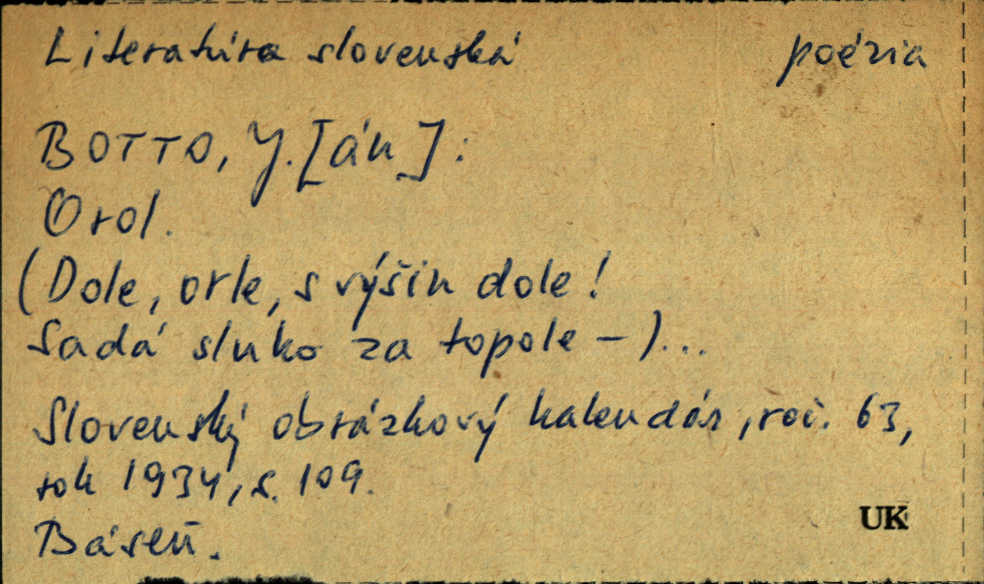 Literatúra slovenská poézia
BOTTO, J.[án]:
Orol.
(Dole, orle, s výšin dole!
Sadá slnko za topole –)...
Slovenský obrázkový kalendár, roč. 63,
rok 1934, s. 109.
Báseň.
UK